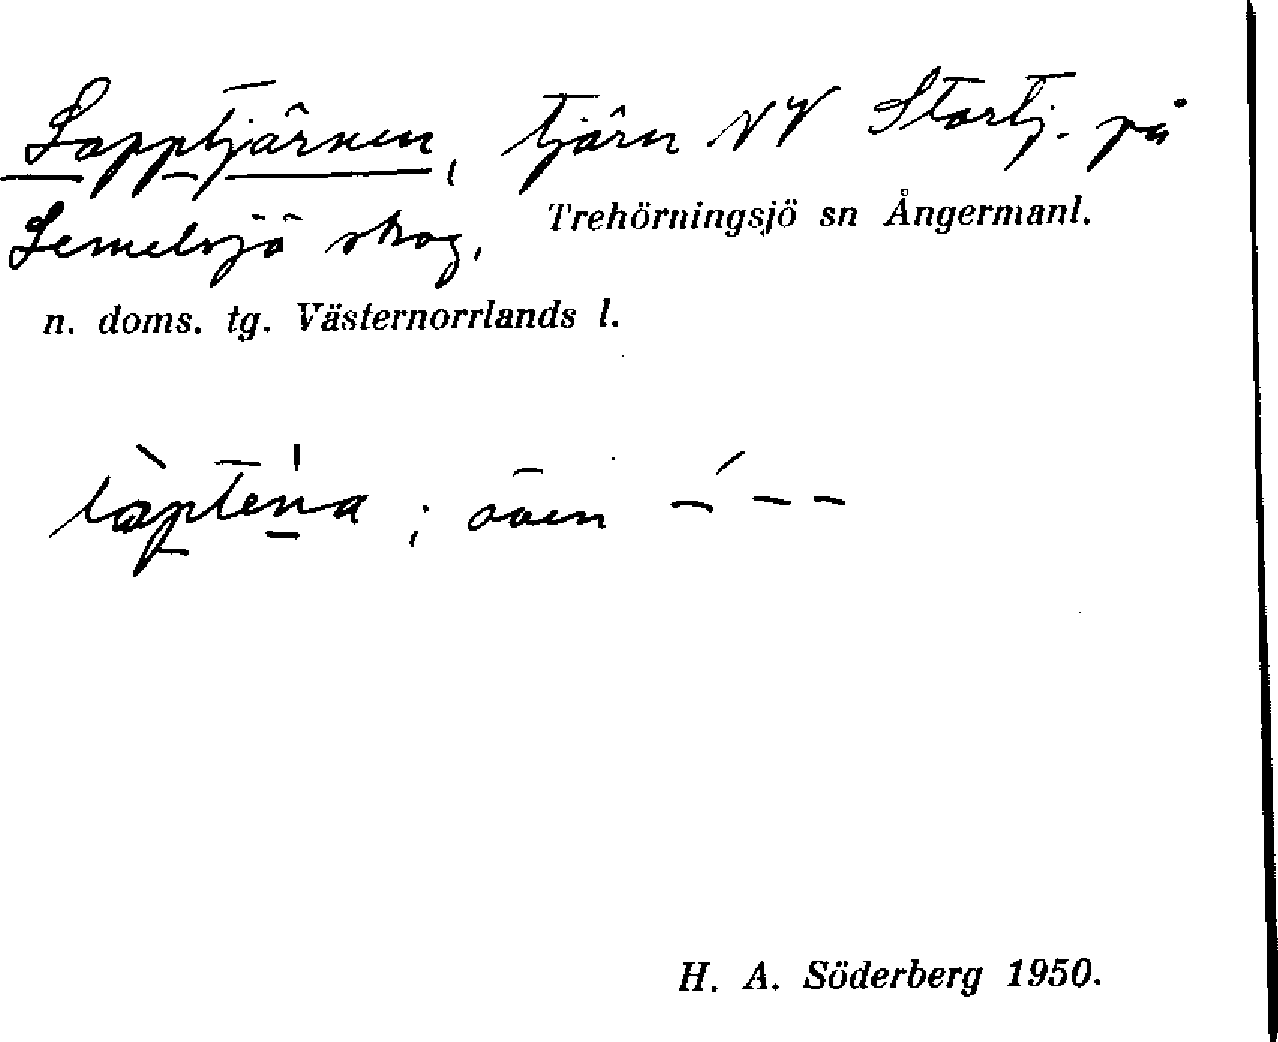 Lapptjärnen, tjärn NV Stortj. på
Lemelsjö skog, Trehörningsjö sn Ångermanl.
n. doms. tg. Västernorrlands l.
även
H. A. Söderberg 1950.